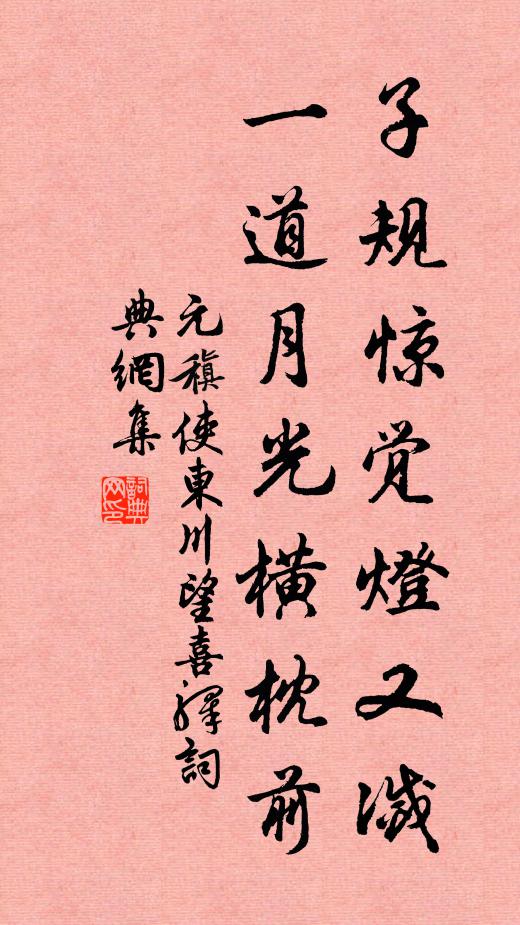 子规惊觉燈又滅
一道月光橫枕前
元稹使東川望喜驛詞
典網集
詞典网印